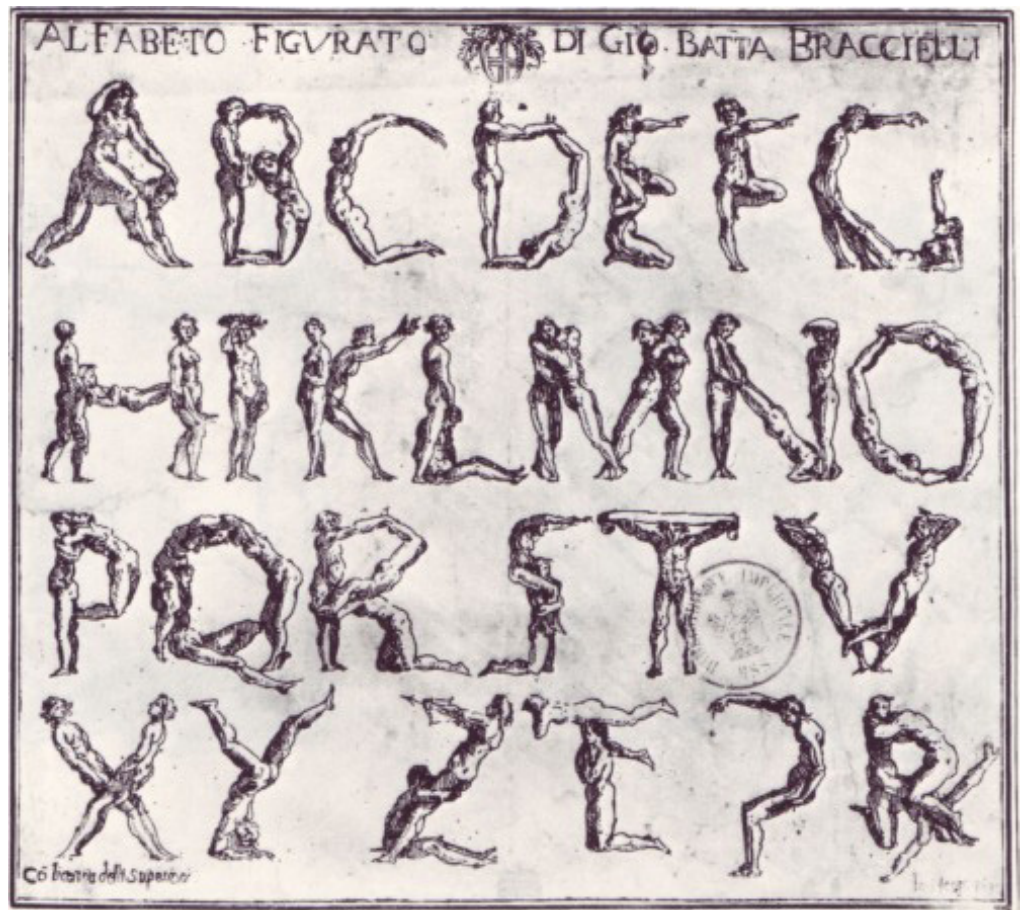 ALFABETO FIGVRATO DI GIO. BATTA BRACCIELLI
A B C D E F G
H I K L M N O
P Q R S T V
X Y Z
Superiori